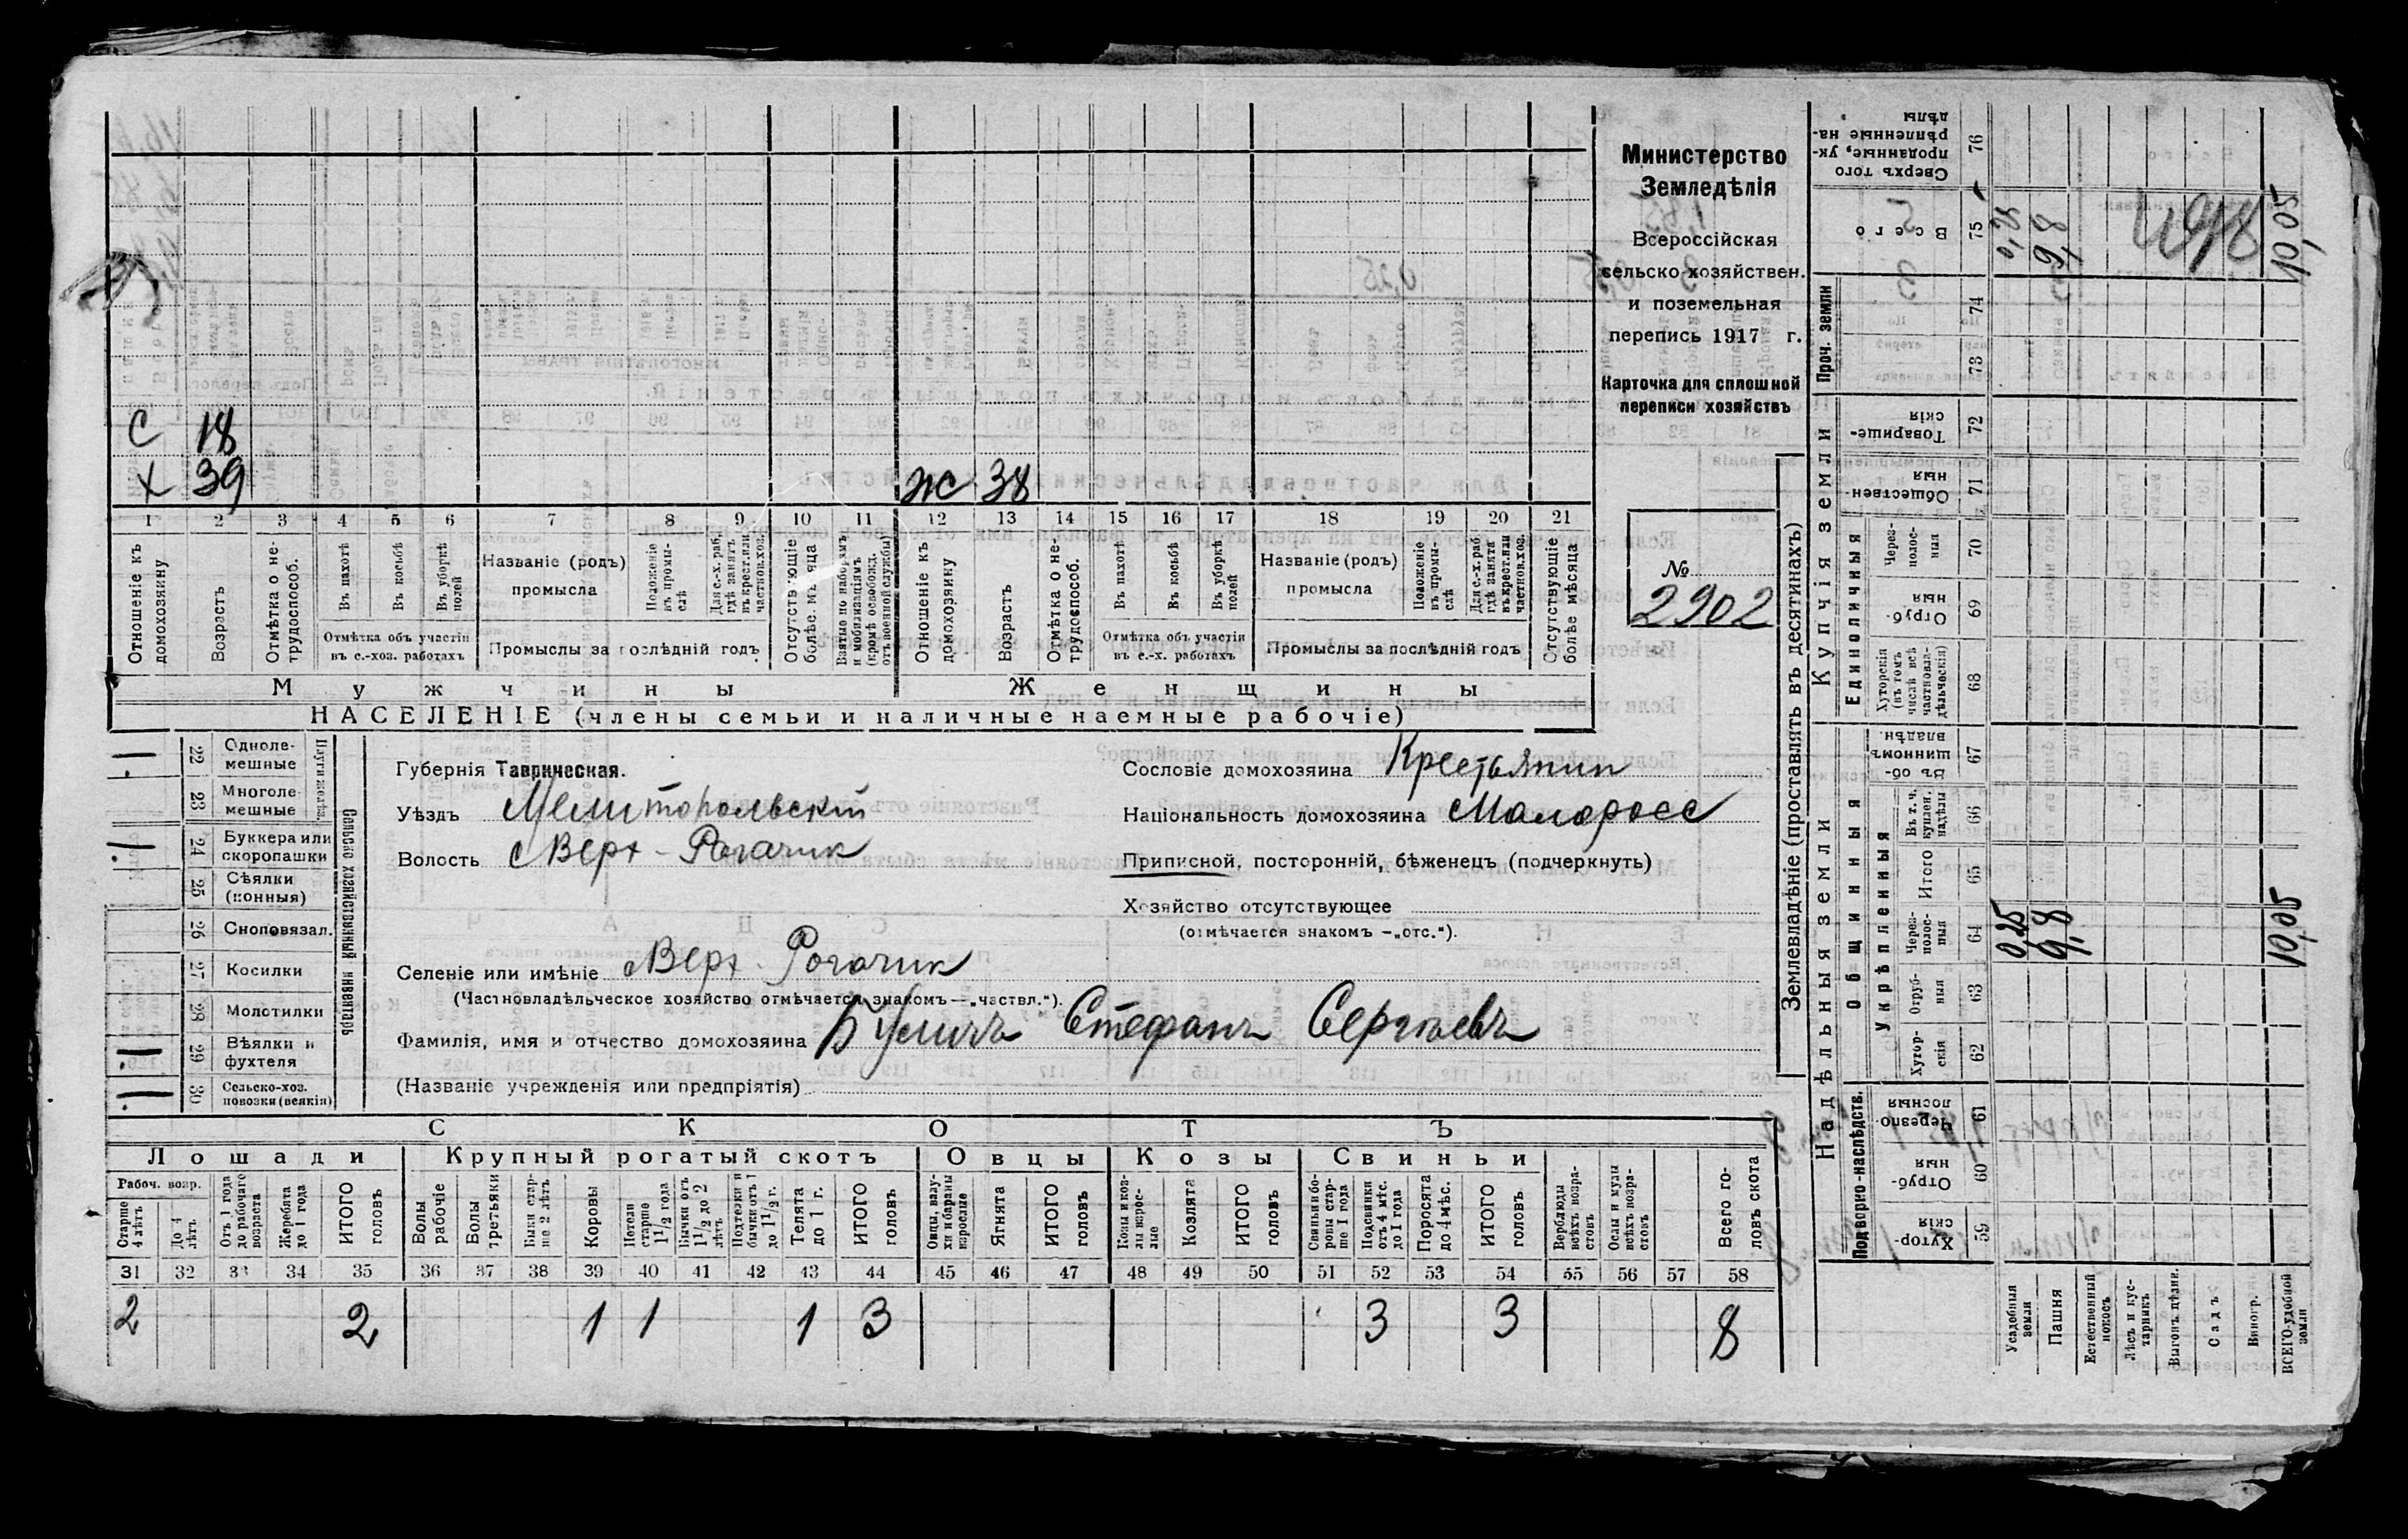 С 18
Х 39 Ж 38
1 2 3 4 5 6 7 8 9 10 11 12 13 14 15 16 17 18 19 20 21
Отношеніе къ домохозяину
Возрастъ
Отмѣтка о не-трудоспособ.
Въ пахотѣ
Въ косьбѣ
Въ уборкѣ полей
Отмѣтка объ участіи
въ с.-хоз. работахъ
Названіе (родъ)
промысла
Положеніе въ промы-слѣ
Для с.-х. раб. гдѣ занятъ въ крест. или частнов. хоз.
Промыслы за послѣдній годъ
Отсутствующіе болѣе мѣсяца
Взятые по наборамъ и мобилизаціямъ (кромѣ освобожд. отъ военной службы)
Отношеніе къ домохозяину
Возрастъ
Отмѣтка о не-трудоспособ.
Въ пахотѣ
Въ косьбѣ
Въ уборкѣ полей
Отмѣтка объ участіи
въ с.-х. работахъ
Названіе (родъ)
промысла
Положеніе въ промы-слѣ
Для с.-х. раб. гдѣ занята въ крест. или частнов. хоз.
Промыслы за послѣдній годъ
Отсутствующіе болѣе мѣсяца
Мужчины Женщины
НАСЕЛЕНІЕ (члены семьи и наличные наемные рабочіе)
Министерство
Земледѣлія
Всероссійская
сельско-хозяйствен.
и поземельная
перепись 1917 г.
Карточка для сплошной
переписи хозяйствъ
№
2902
Сельско-хозяйственный инвентарь
1 22 Одноле-мешные
23 Многоле-мешные
1 24 Буккера или скоропашки
25 Сѣялки (конныя)
26 Сноповязал.
27 Косилки
28 Молотилки
1 29 Вѣялки и фухтеля
1 30 Сельско-хоз. повозки (всякія)
Губернія Таврическая.
Уѣздъ Мелитопольскій
Волость Верх-Рогачик
Селеніе или имѣніе Верх-Рогачик
(Частновладѣльческое хозяйство отмѣчается знакомъ—„частвл.“).
Фамилія, имя и отчество домохозяина Бусилъ Стефанъ Сергѣевъ
(Названіе учрежденія или предпріятія)
Сословіе домохозяина Крестьянин
Національность домохозяина Малоросс
Приписной, посторонній, бѣженецъ (подчеркнуть)
Хозяйство отсутствующее
(отмѣчается знакомъ —„отс.“).
СКОТЪ
Лошади Крупный рогатый скотъ Овцы Козы Свиньи
Рабоч. возр.
Старше 4 лѣтъ
До 4 лѣтъ
Отъ 1 года до рабочаго возраста
Жеребята до 1 года
ИТОГО головъ
Волы рабочіе
Волы третьяки
Быки стар-ше 2 лѣтъ
Коровы
Нетели старше 1 1/2 года
Бычки отъ 1 1/2 до 2 лѣтъ
Подтелки и бычки отъ 1 до 1 1/2 г.
Телята до 1 г.
ИТОГО головъ
Овцы, валу-хи и бараны взрослые
Ягнята
ИТОГО головъ
Козы и коз-лы взрос-лые
Козлята
ИТОГО головъ
Свиньи и бо-ровы стар-ше 1 года
Подсвинки отъ 4 мѣс. до 1 года
Поросята до 4 мѣс.
ИТОГО головъ
Верблюды всѣхъ возра-стовъ
Ослы и мулы всѣхъ возра-стовъ
Всего го-ловъ скота
31 32 33 34 35 36 37 38 39 40 41 42 43 44 45 46 47 48 49 50 51 52 53 54 55 56 57 58
2 2 1 1 1 3 3 3 8
Землевладѣніе (проставлять въ десятинахъ)
Надѣльныя земли Купчія земли Проч. земли
Подворно-наслѣдств.
Общинныя
Укрѣпленныя
Единоличныя
Хутор-скія 59
Отруб-ныя 60
Черезпо-лосныя 61
Хутор-скія 62
Отруб-ныя 63
Через-полос-ныя 64
Итого 65
Въ т. ч. куплен. надѣлы 66
Въ об-щинномъ владѣн. 67
Хуторскія (въ томъ числѣ всѣ частновла-дѣльческія) 68
Отруб-ныя 69
Через-полос-ныя 70
Обществен-ныя 71
Товарище-скія 72
73
74
Всего 75
Сверхъ того проданные, ук-рѣпленные на-дѣлы 76
Усадебныя земли 0,25 0,25
Пашня 9,8 9,8
Естественный покосъ
Лѣсъ и кус-тарникъ
Выгонъ цѣлин.
Садъ
Виногр.
ВСЕГО удобной земли 10,05 10,05